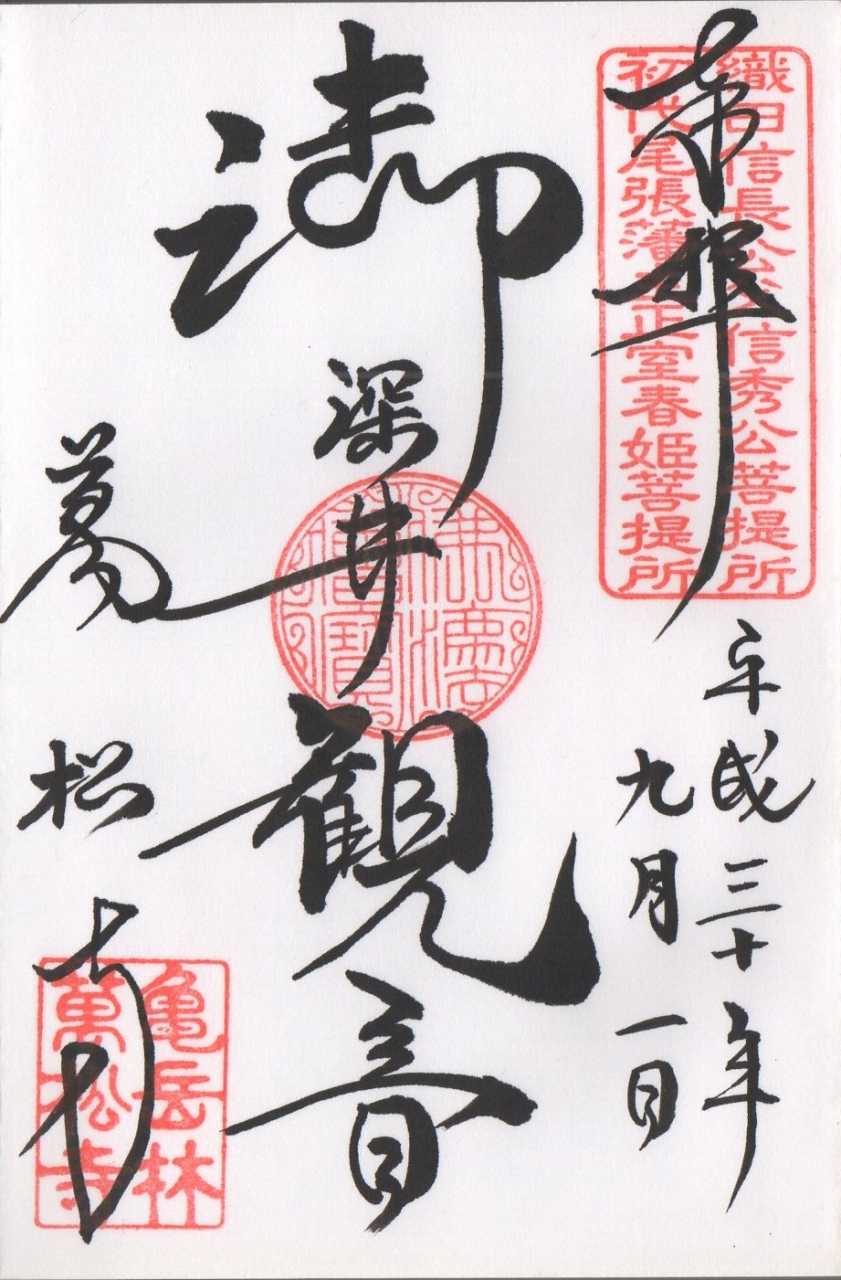 奉拝
織田信長公父信秀公菩提所
初代尾張藩主正室春姫菩提所
平成三十年
九月一日
御深井観音
佛法僧寶
萬松寺
亀岳林
萬松寺